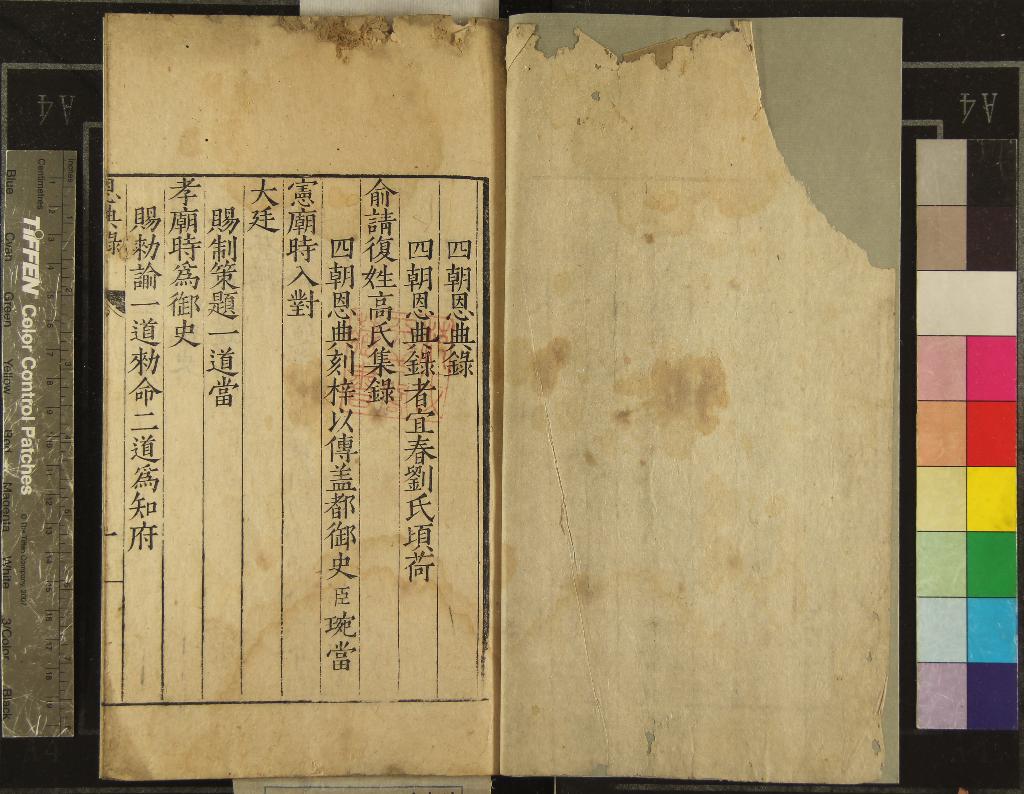 四朝恩典錄
四朝恩典錄者宜春劉氏頃荷
俞請復姓高氏集錄
四朝恩典刻梓以傳盖都御史臣琬當
憲廟時入對
大廷
賜制策題一道當
孝廟時為御史
賜勑諭一道勑命二道為知府
恩典錄
A4
A4
Inches
Centimetres
TIFFEN Color Control Patches
© The Tiffen Company, 2007
Blue
Cyan
Green
Yellow
Red
Magenta
White
3/Color
Black